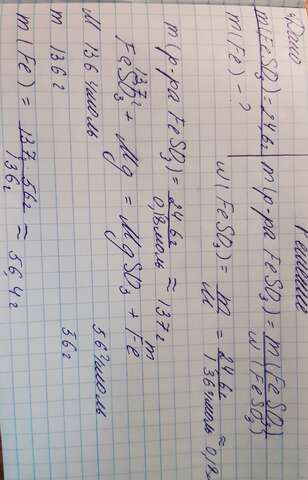 Дано
Решение
m(FeSO₃)=24,6г
m(Fe) - ?
m(р-ра FeSO₃) = m(FeSO₃) / w(FeSO₃)
w(FeSO₃) = m / M = 24,6г / 136г/моль ≈ 0,18
m(р-ра FeSO₃) = 24,6г / 0,18моль ≈ 137г
137г m
FeSO₃ + Mg = MgSO₃ + Fe
M 136г/моль 56г/моль
m 136г 56г
m(Fe) = 137г·56г / 136г ≈ 56,4г